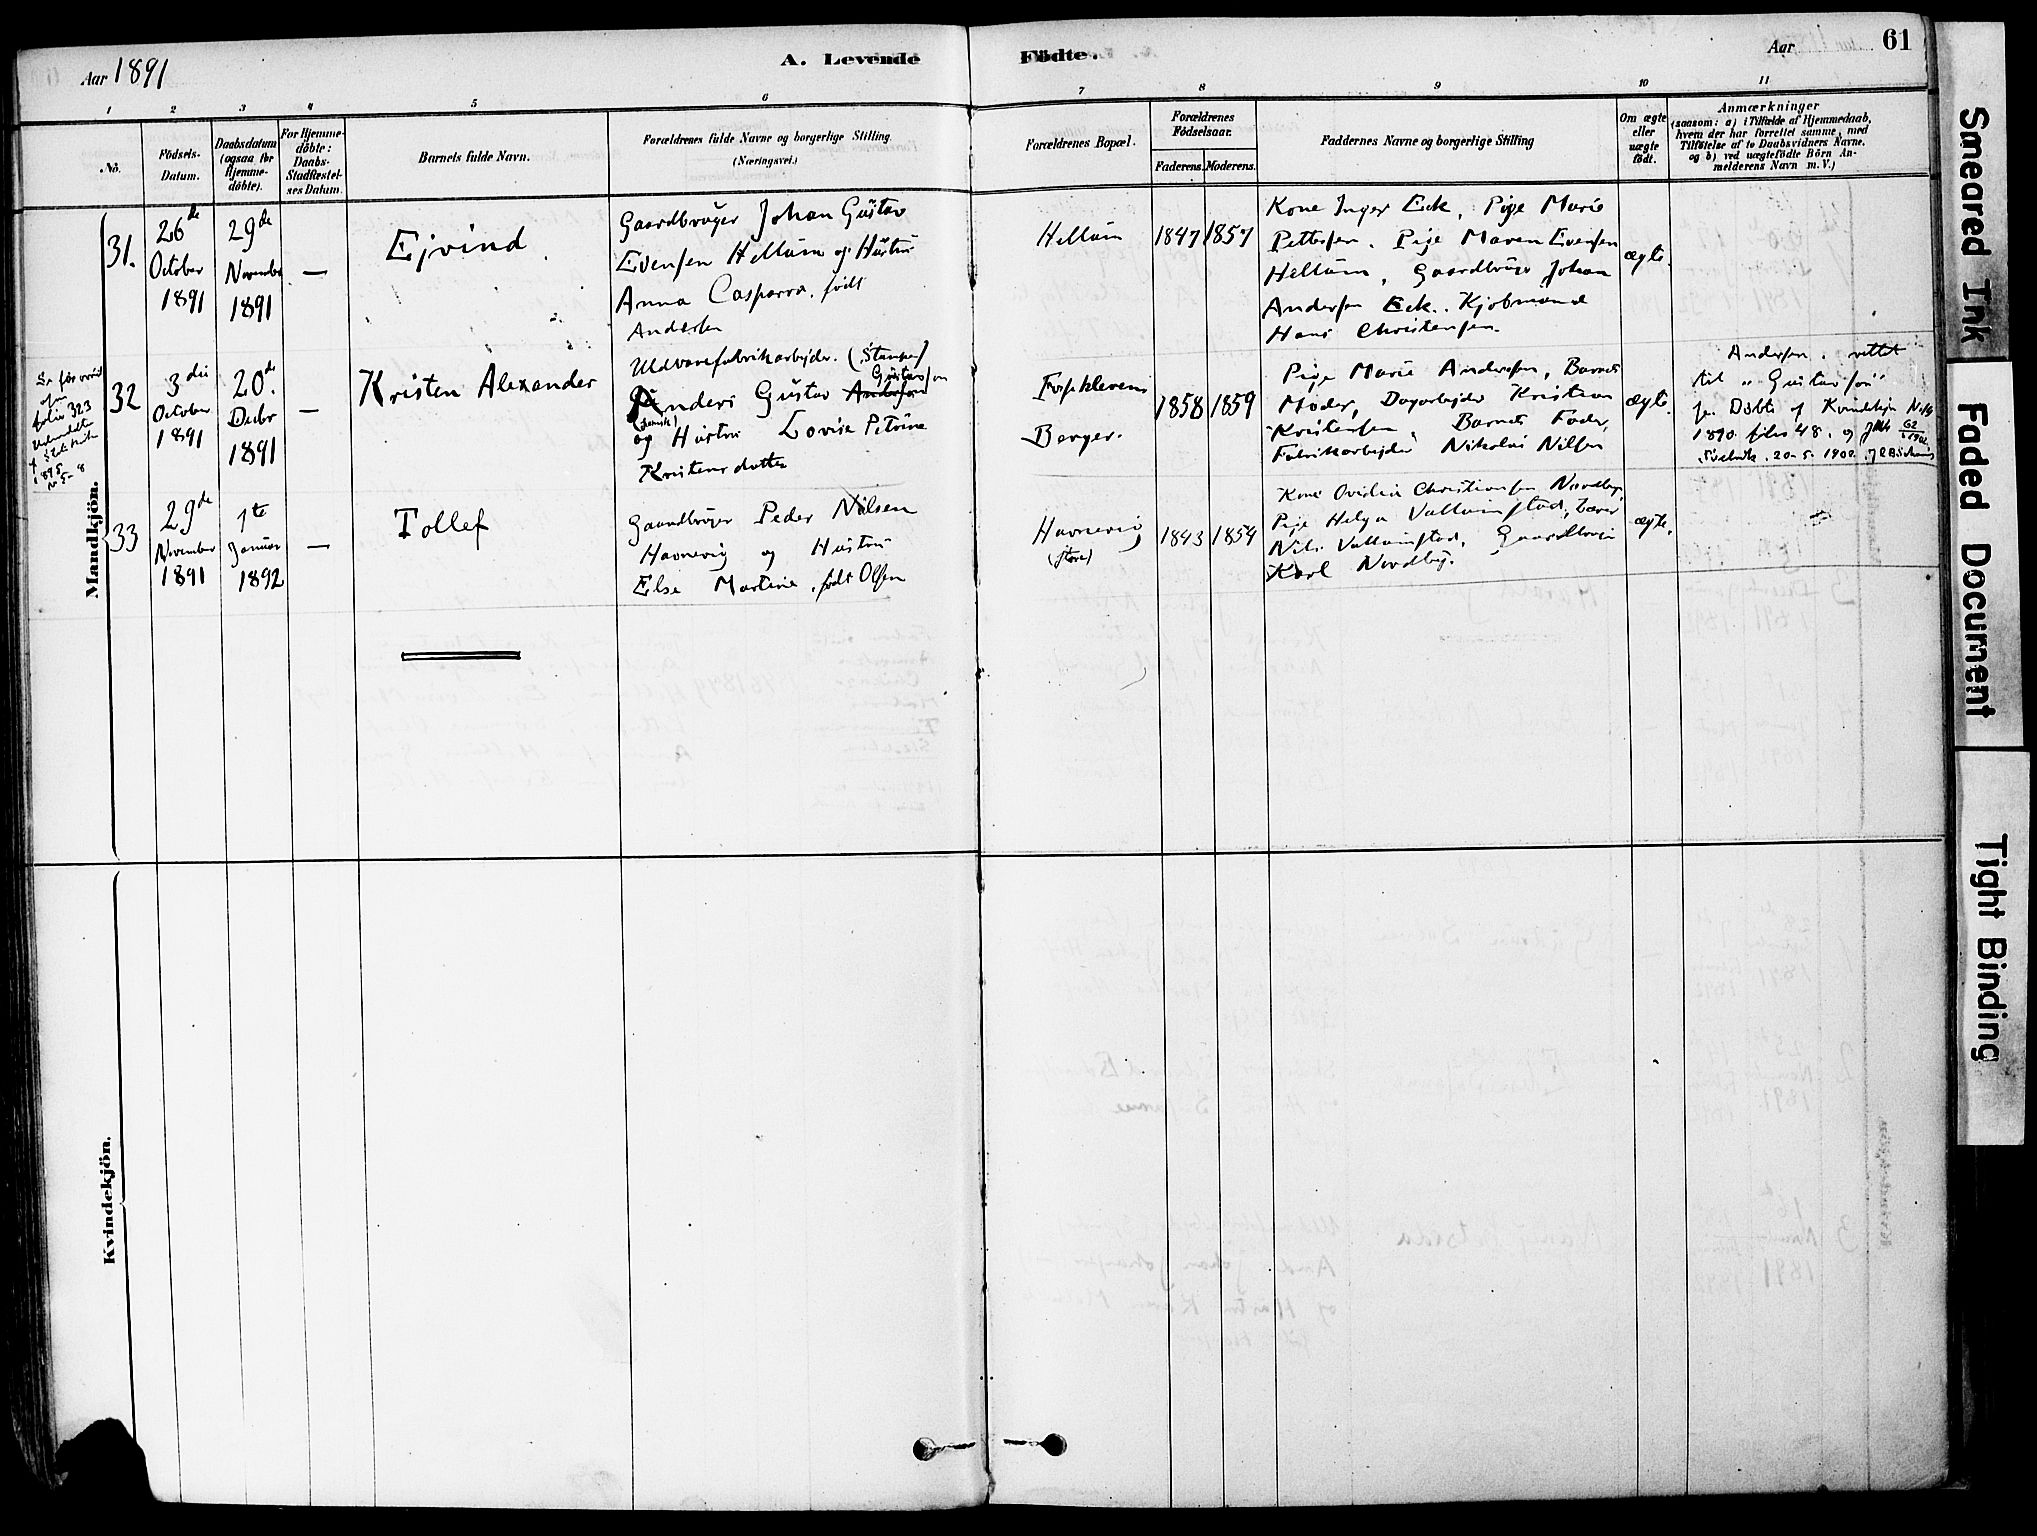 Aar 1891
A. Levende
Födte.
Aar
61
1 2 3 4 5 6 7 8 9 10 11
No.
Födsels-
Datum.
Daabsdatum
(ogsaa for
Hjemme-
döbte).
For Hjemme-
döbte:
Daabs-
Stadfæstel-
ses Datum.
Barnets fulde Navn.
Forældrenes fulde Navne og borgerlige Stilling
(Næringsvei.)
Forældrenes Bopæl.
Forældrenes
Födselsaar.
Faderens. Moderens.
Faddernes Navne og borgerlige Stilling
Om ægte
eller
uægte
födt.
Anmærkninger
(saasom: a) i Tilfælde af Hjemmedaab,
hvem der har forrettet samme, med
Tilföielse af to Daabsvidners Navne,
og b) ved uægtefödte Börn An-
melderens Navn m. V.)
Mandkjön.
31.
26de
October
1891
29de
November
1891
—
Ejvind
Gaardbruger Johan Gustav
Evensen Hellum og Hustru
Anna Casparra, født
Andersen
Hellum
1847 1857
Kone Inger Eck, Pige Marie
Pettersen, Pige Maren Evensen
Hellum, Gaardbruger Johan
Andersen Eck, Kjøbmand
Hans Christensen.
ægte.
folio 323
1895
32
3die
October
1891
20de
Decbr
1891
—
Kristen Alexander
Uldvarefabrikarbejder. (Stamper)
Gustavson
Anders Gustav Andersen
(svensk)
og Hustru Lovise Petrine
Kristensdatter
Fossklevens
Berger.
1858 1859
Pige Marie Andersen, Barnets
Moder, Dagarbejder Kristian
Kristensen, Barnets Fader,
Fabrikarbejder Nikolai Nilsen
ægte.
Andersen. rettet
til "Gustavson"
Døbte af Kvindekjøn
1890 folio 48. og
20-5-1902.
33
29de
November
1891
1ste
Januar
1892
—
Tollef
Gaardbruger Peder Nilsen
Havnevig og Hustru
Else Martine, født Olsen
Havnevig
(store)
1843 1854
Kone Ovidia Christiansen Nordby,
Pige Helga Vallumstad, Lærer
Nils Vallumstad, Gaardbruger
Karl Nordby.
ægte.
Kvindekjön.
Smeared Ink
Faded Document
Tight Binding